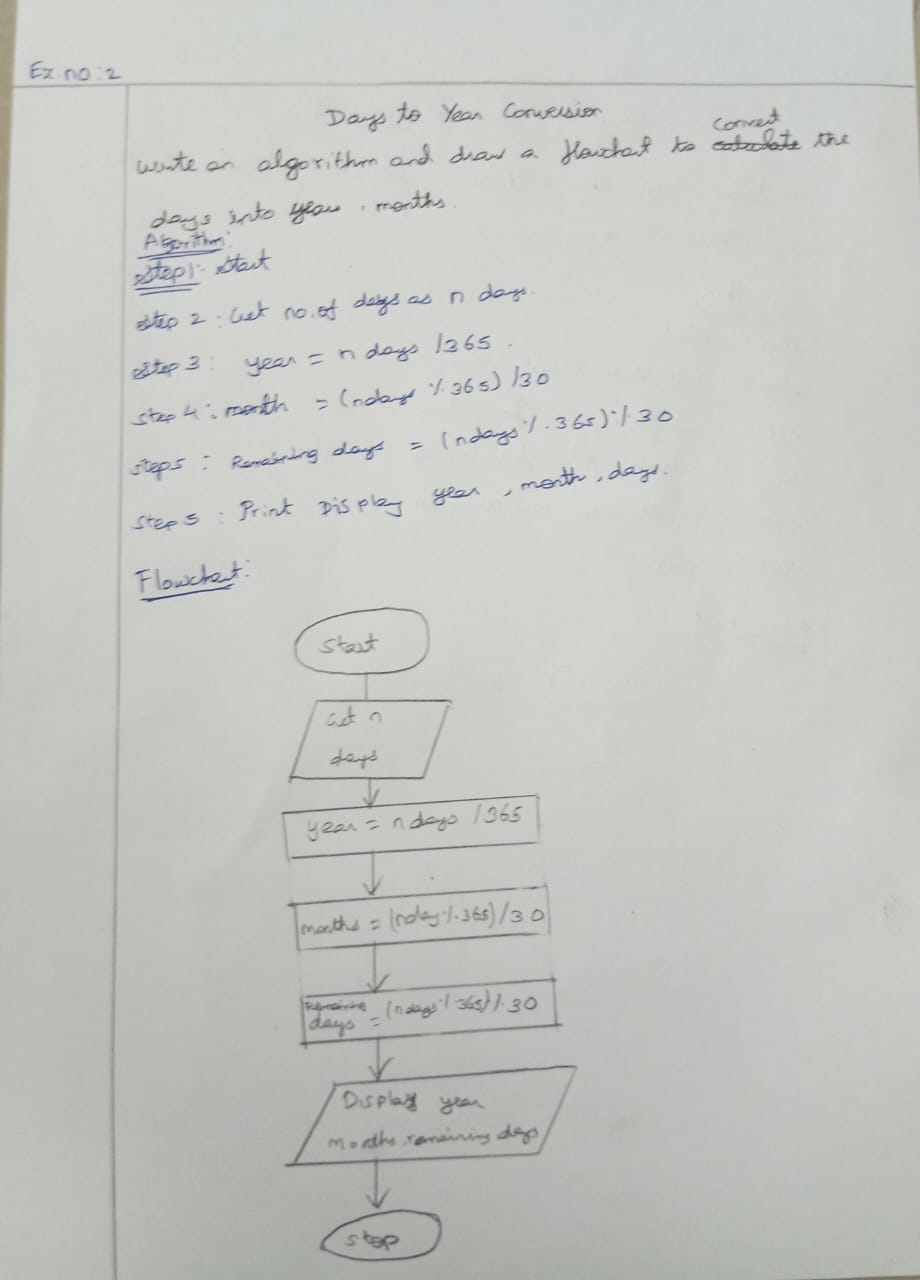 Ex.no:2
Days to Year Conversion
Write an algorithm and draw a flowchart to calculate convert the
days into year, months.
Algorithm:
Step1: Start
Step 2: Get no.of days as n days.
Step 3: year = n days /365.
Step 4: month = (ndays % 365) /30
Step5: Remaining days = (ndays % 365) % 30
Step 5: Print Display year, month, days.
Flowchart:
Start
Get n
days
year = n days /365
months = (nday % 365)/30
Remaining
days = (ndays % 365) % 30
Display year
months remaining days
stop